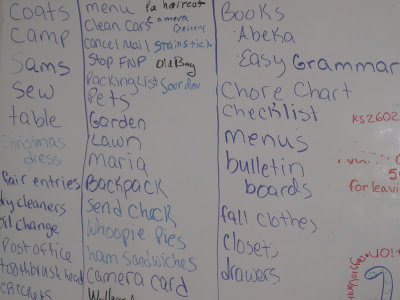 coats
camp
Sams
sew
table
Christmas
dress
fair entries
dry cleaners
oil change
Post office
toothbrush head
crickets
menu Pa haircut
Clean Cars camera
Battery
cancel mail stainstick
Stop FNP Old Bay
Packing List Sourdou
Pets
Garden
Lawn
maria
BackPack
send check
Whoopie Pies
ham sandwiches
camera card
Books
Abeka
Easy Grammar
Chore Chart
checklist
menus
bulletin
boards
fall clothes
closets
drawers
KS2602
for leavi